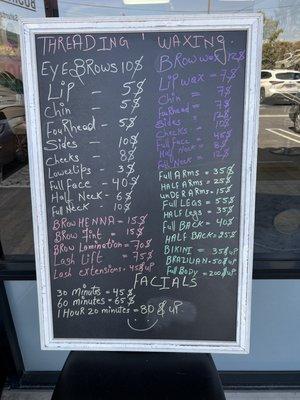 THREADING & WAXING
EYEBROWS 10$
Lip - 5$
Chin - 5$
FouRHead - 5$
Sides - 10$
Cheeks - 8$
LowerLips - 3$
Full Face - 40$
Half Neck - 6$
Full Neck - 10$
BRow HENNA - 15$
BRow Tint - 15$
BRow Lamination - 70$
Lash Lift - 75$
Lash extensions - 45$ UP
BRow wax - 12$
Lip wax - 7$
Chin - 7$
FouRhead - 7$
Sides - 12$
Cheeks - 10$
Full Face - 45$
Half Neck - 8$
Full Neck - 12$
Full ARms - 35$
HALF ARms - 25$
UNDER ARms - 15$
Full LEGS - 55$
Half Legs - 35$
Full BACK - 40$
HALF BACK - 25$
BIKINI - 35$ UP
BRAZILIAN - 50$ UP
Full BoDY - 200$ UP
FACIALS
30 minutes = 45$
60 minutes = 65$
1 Hour 20 minutes = 80$ UP